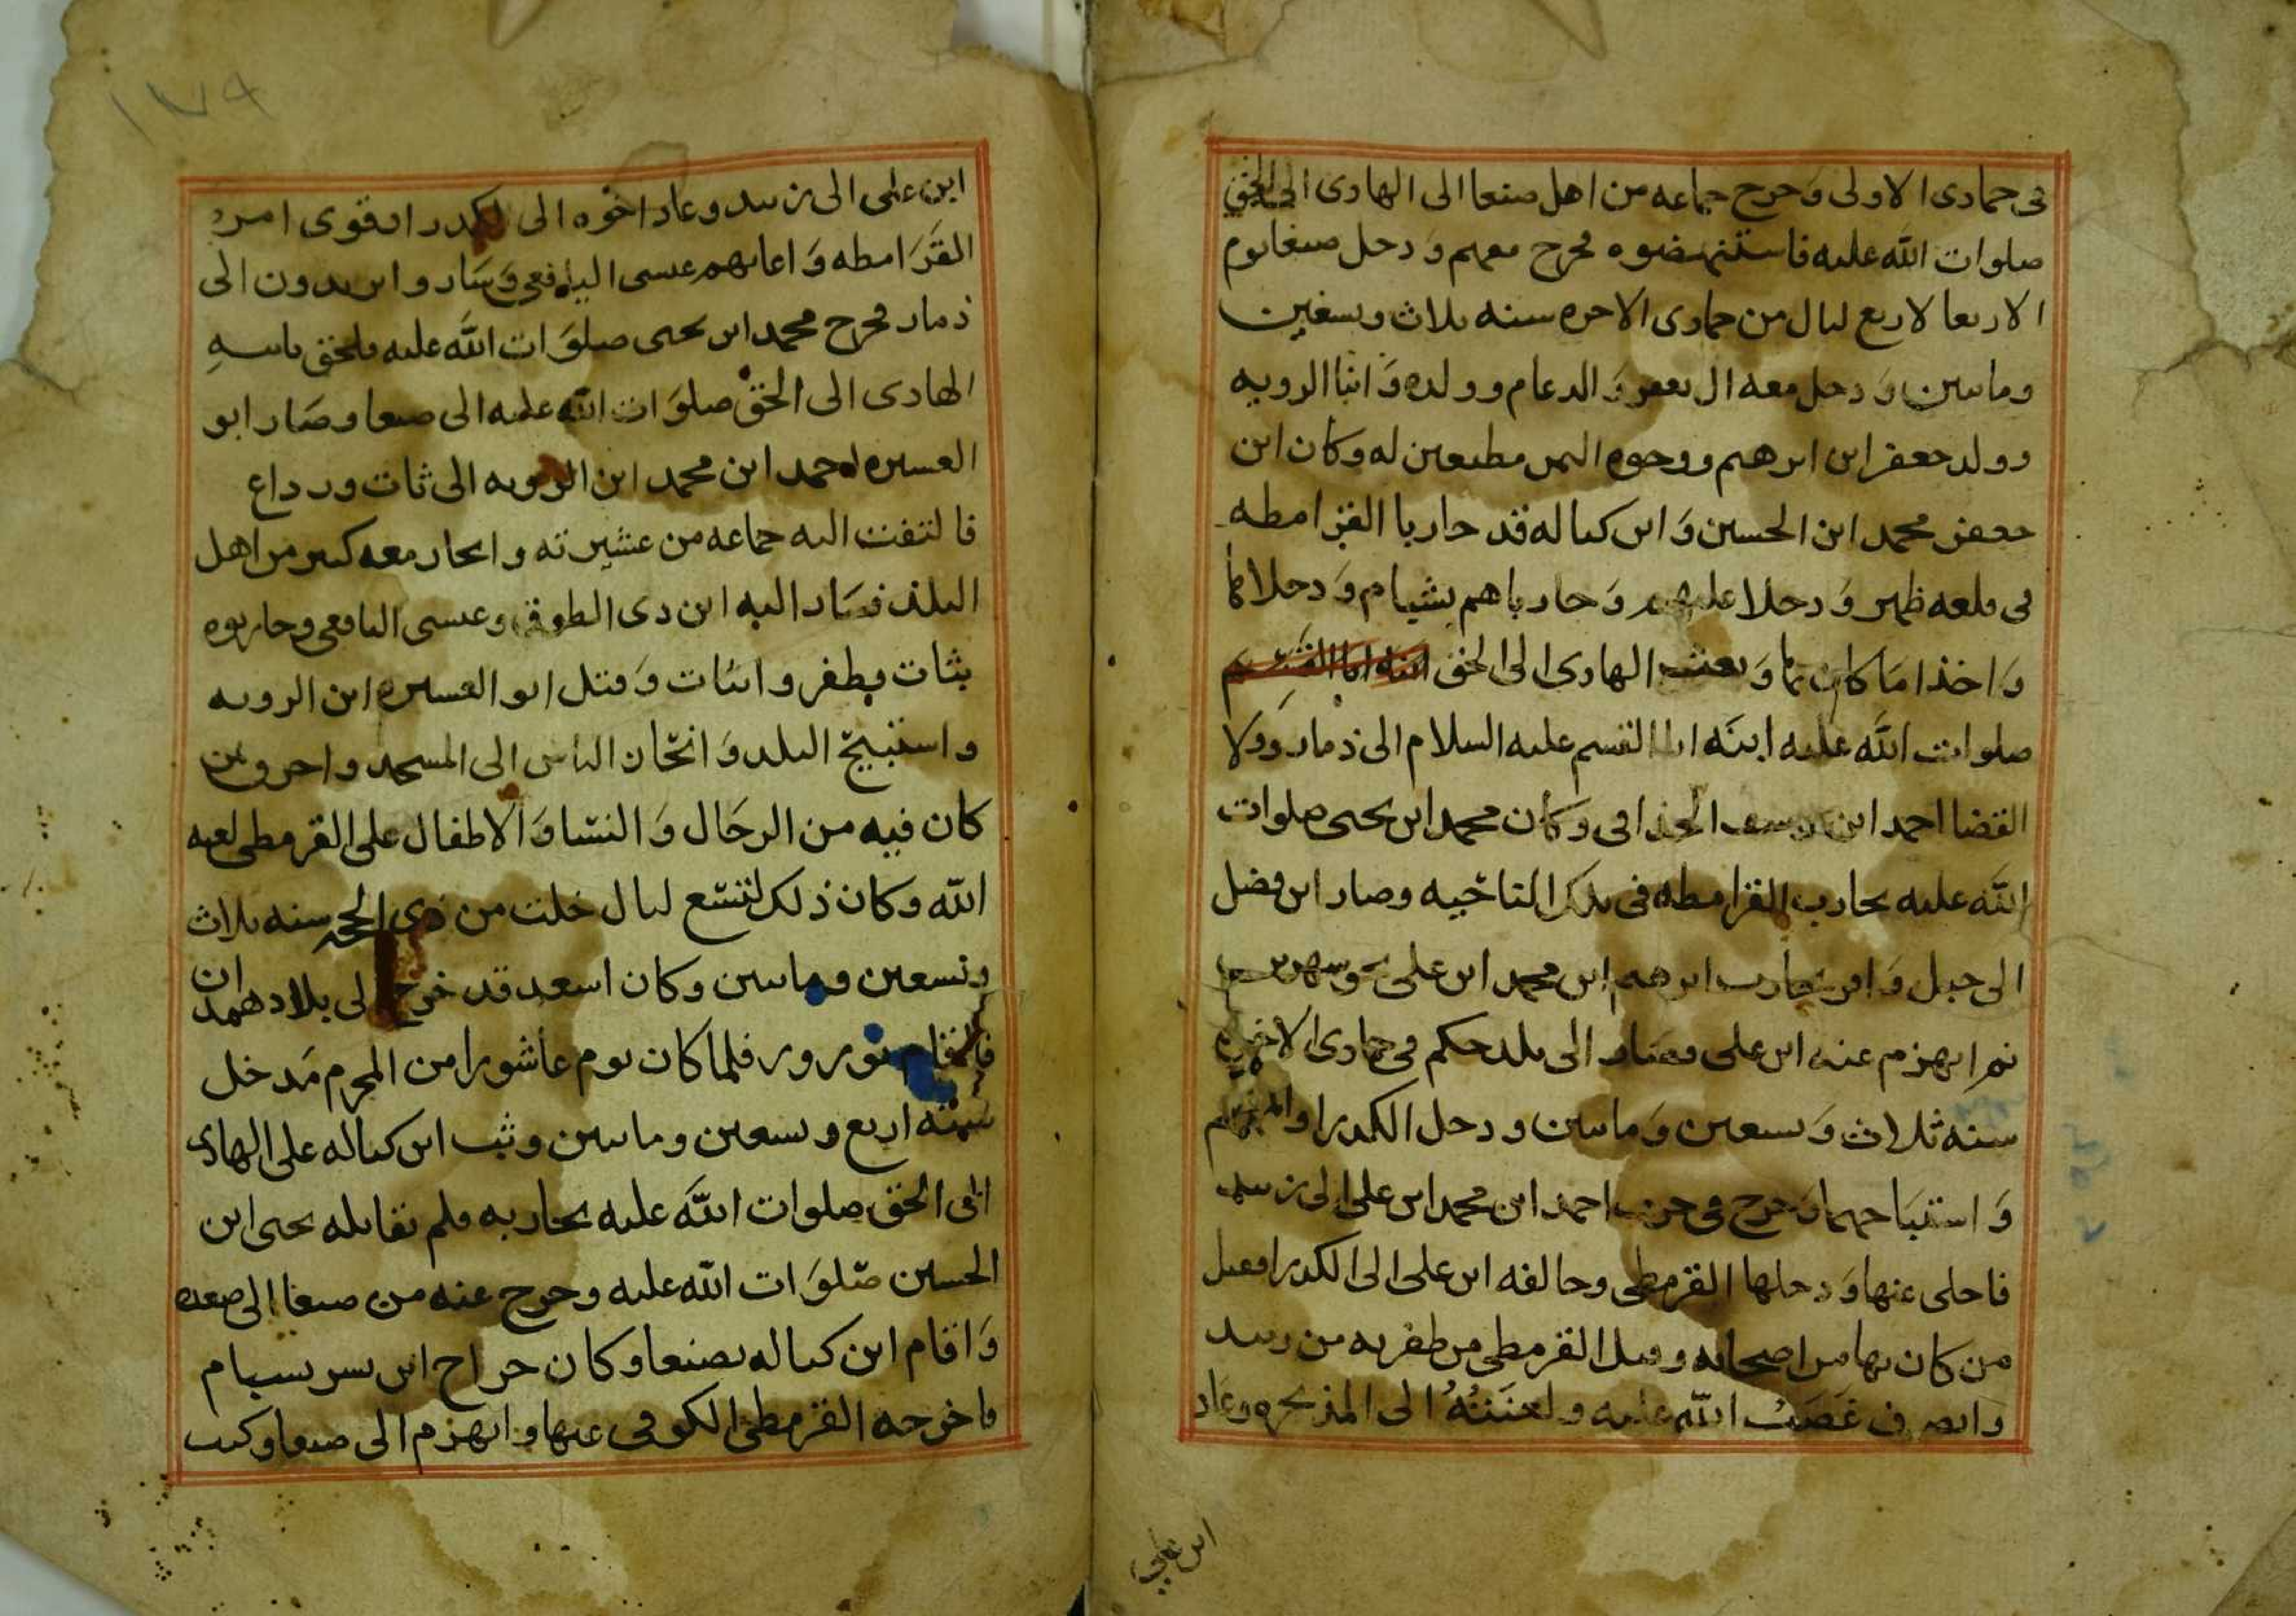 فى حمادى الاولى وَحرح جماعه من اهل صنعا الى الهادى الى الحق
صلوات اللَّه عليه فاستنهضوه فحرح معهم وَدحل صنعا يوم
الاربعا لاربع ليال من حمادى الاحره سنه ثلاث وتسعين
وماتىىن وَدحل معه ال يعفر وَالدعام وولده وَابنا الرويه
وولد جعفر ابن ابرهيم ووجوه اليمن مطيعين له وكان ابن
جعفر محمد ابن الحسين وَابن كباله قد حاربا القرامطه
فى قلعه ظهر وَدحلا عليهم وَحارباهم بشبام وَدحلاها
وَاخذا مَا كان بها وَبعث الهادى الى الحق ابنه ابا القسم
صلوات اللَّه عليه ابنَه ابا القسم عليه السلام الى ذمار وَولا
القضا احمد ابن يوسف الحذافى وَكان محمد ابن يحيى صلوات
اللَّه عليه يحارب القرامطه فى تلك الناحيه وصار ابن فضل
الى جبل وَامر يحارب ابرهيم ابن محمد ابن على
ثم انهزم عنه ابن على وصار الى بلد حكم فى جمادى الاخره
سنه ثلاث وَتسعين وَماتين ودحل الكدرا والمهجم
وَاستبَاحهما وَحرج فى حرب احمد ابن محمد ابن على الى زبيد
فاحلى عنها وَدحلها القرمطى وحالفه ابن على الى الكدرا فقتل
من كان بها من اصحابه وقتل القرمطى من ظفر به من زبيد
وانصرف غَضَبُ اللَّه عليه ولعنَتُهُ الى المذيحره وعَاد
ابن على
١٧٩
ابن على الى زبيد وعاد اخوه الى الكدرا وقوى امر
القَرَامطه وَاعانهم عيسى اليافعى وَسَار وابر يدون الى
ذمار فحرح محمد ابن يحيى صلوَات اللَّه عليه فلحق بابيهِ
الهادى الى الحق صلوَات اللَّه عليه الى صنعا وصَار ابو
العسيره احمد ابن محمد ابن الرويه الى ثات ورداع
فالتفت اليه جماعه من عشيرته وانحار معه كىىر من اهل
البلد فسَار اليه ابن ذى الطوق وعيسى اليافعى وحاربوه
بثات وظفر وابثات وَقتل ابو العسيره ابن الرويه
واستبيح البلد وَانحَان الناس الى المسجد واحرق من
كان فيه من الرجَال وَالنسَا وَالاطفال على القرمطى لعنه
اللَّه وكان ذلك لتسَع ليال خلت من ذى الحجه سنه ثلاث
وتسعين وماتين وكان اسعد قد خرج الى بلاد همدان
فاقام بورور فلما كان يوم عاشورا من المحرم مَدخل
سنه اربع وتسعين وماتىىن وثب ابن كباله على الهادى
الى الحق صلوات اللَّه عليه يحاربه فلم يقابله يحيى ابن
الحسين صَلوَات اللَّه عليه وحرج عنه من صنعا الى صعده
وَاقام ابن كباله بصنعا وكان جراح ابن بسر بشبام
فاخرجه القرمطى الكوفى عنها وانهزم الى صنعا وكتب